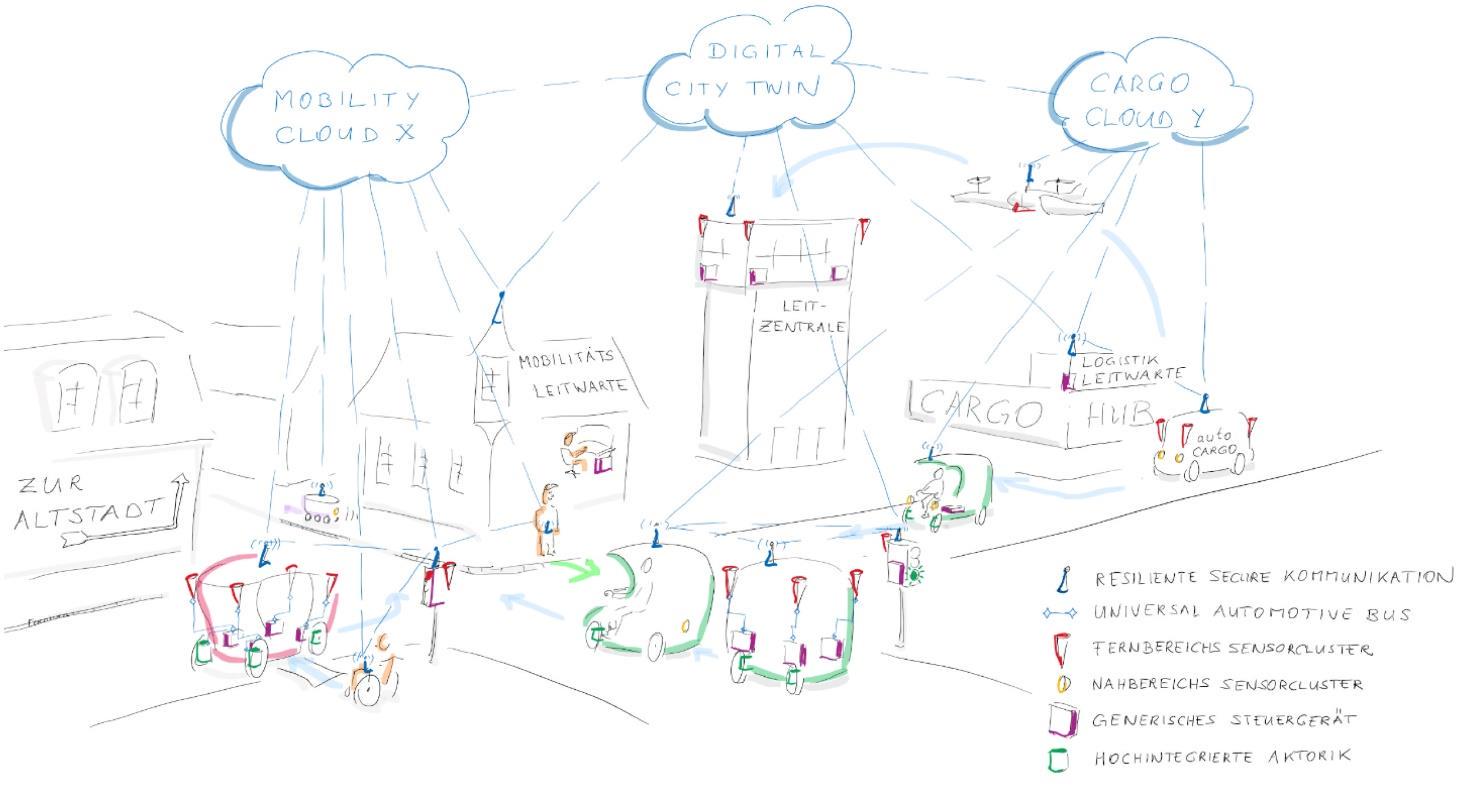 MOBILITY
CLOUD X
DIGITAL
CITY TWIN
CARGO
CLOUD Y
LEIT-
ZENTRALE
MOBILITÄTS
LEITWARTE
LOGISTIK
LEITWARTE
CARGO HUB
auto
CARGO
ZUR
ALTSTADT
RESILIENTE SECURE KOMMUNIKATION
UNIVERSAL AUTOMOTIVE BUS
FERNBEREICHS SENSORCLUSTER
NAHBEREICHS SENSORCLUSTER
GENERISCHES STEUERGERÄT
HOCHINTEGRIERTE AKTORIK